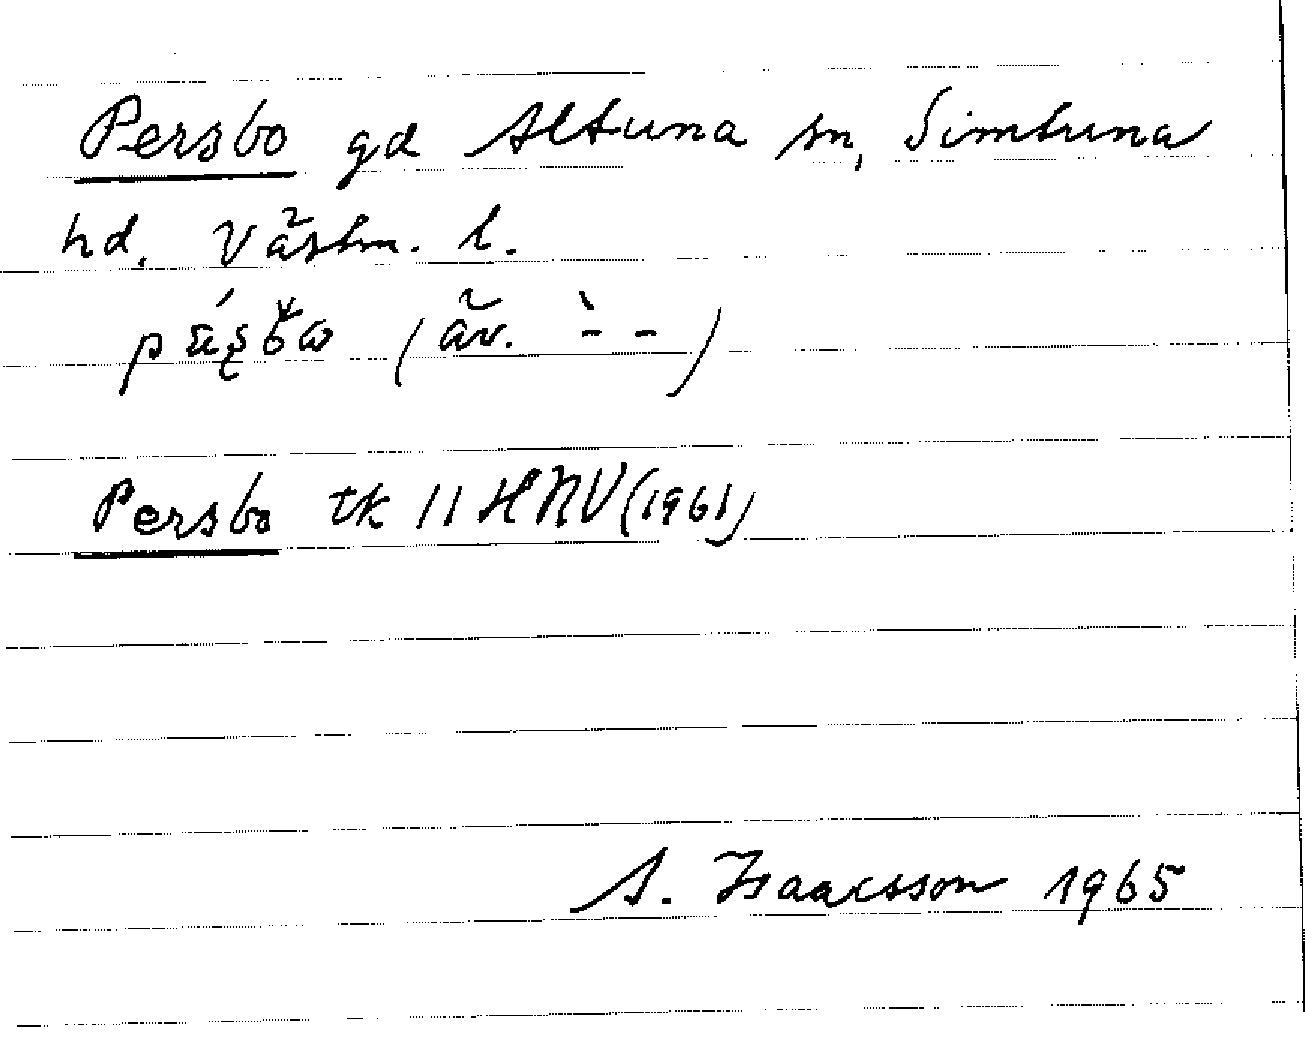 Persbo gd Altuna sn, Simtuna
hd. Västm. l.
(äv. `- -)
Persbo tk 11 HNV (1961)
A. Isaacsson 1965